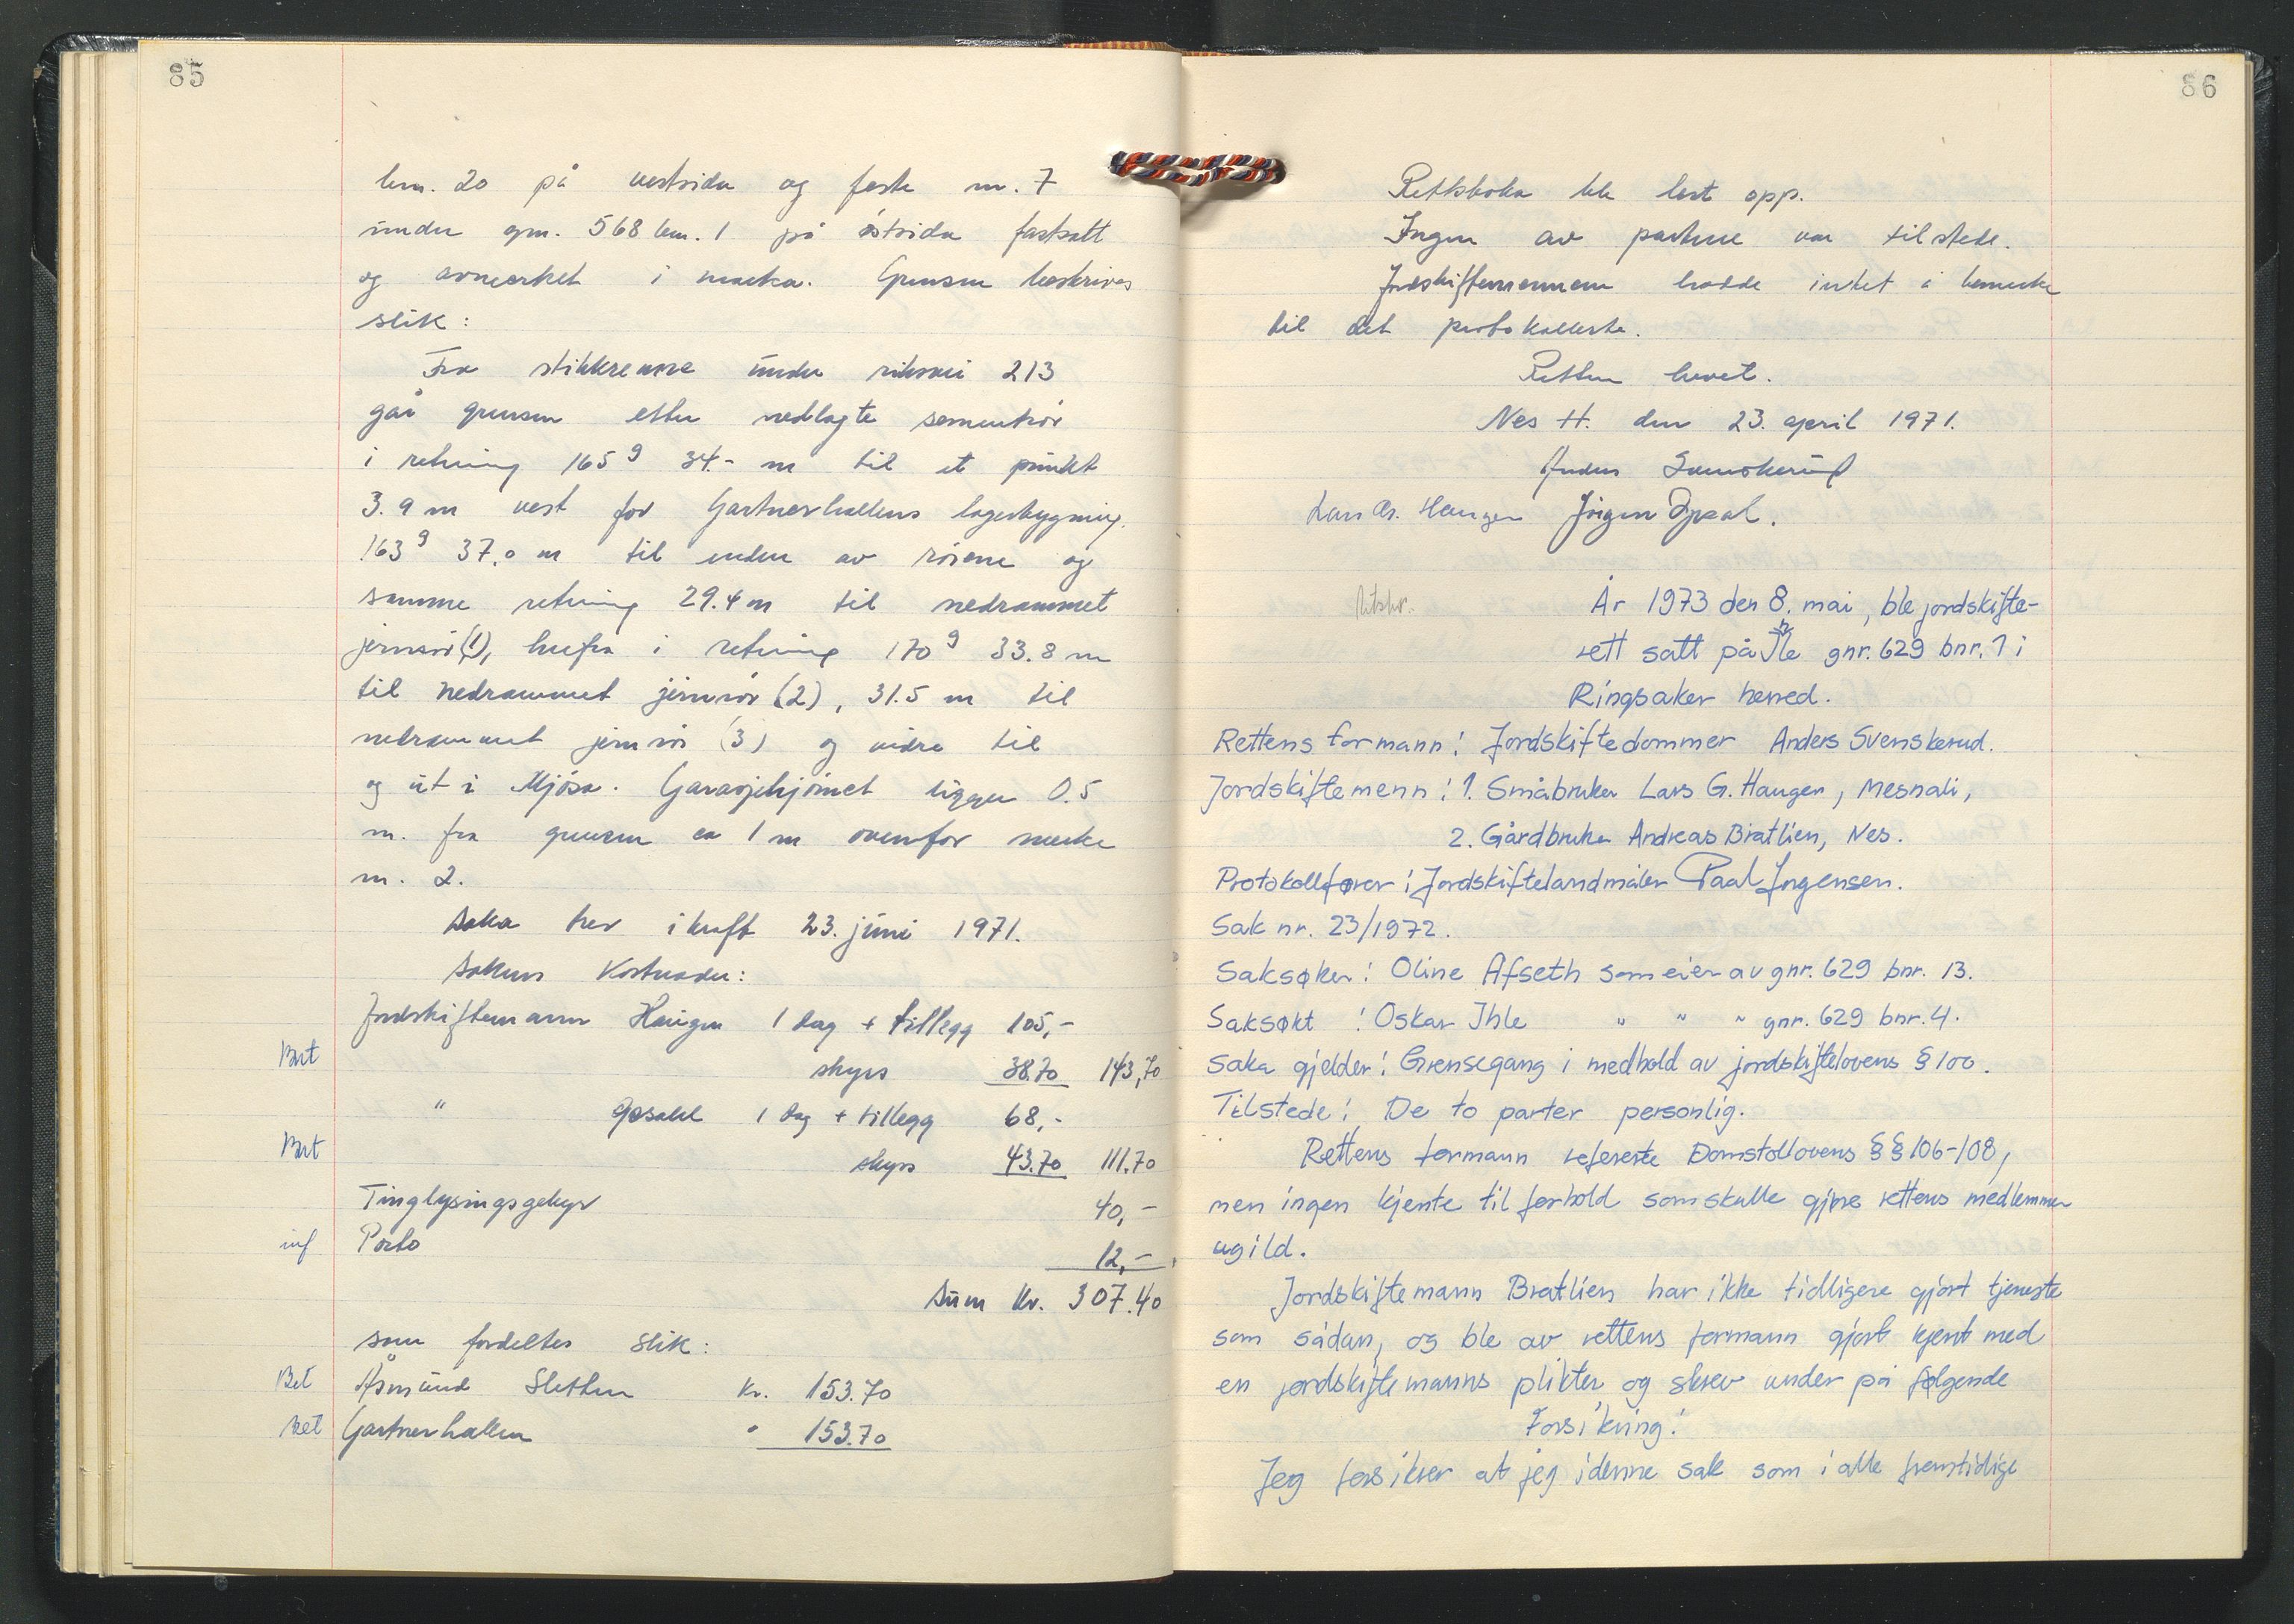 85
bnr. 20 på vestsida og feste nr. 7
under gnr. 568 bnr. 1 på östsida fastsatt
og avmerket i marka. Grensen beskrives
slik:
Fra stikkrenne under riksvei 213
går grensen etter nedlagte sementrör
i retning 165 g 34.- m til et punkt
3.9 m vest for Gartnerhallens lagerbygning.
163 g 37.0 m til enden av rörene og
samme retning 29.4 m til nedrammet
jernrör (1), herfra i retning 170 g 33.8 m
til nedrammet jernrör (2), 31.5 m til
nedrammet jernrör (3) og videre til
og ut i Mjösa. Garasjehjörnet ligger 0.5
m. fra grensen ca 1 m ovenfor merke
nr. 2.
Saka trer i kraft 23. juni 1971.
Sakens Kostnader:
Jordskiftemann Haugen 1 dag + tillegg 105,-
skyss 38.70 143,70
" Opsahl 1 dag + tillegg 68,-
skyss 43.70 111.70
Tinglysingsgebyr 40,-
Porto 12,-
Sum Kr. 307.40
som fordeltes slik:
Bet Åsmund Sletten Kr. 153.70
Bet Gartnerhallen " 153.70
86
Rettsboka ble lest opp.
Ingen av partene var tilstede.
Jordskiftemennene hadde intet å bemerke
til det protokollerte.
Retten hevet.
Nes H. den 23. april 1971.
Anders Svenskerud
Lars G. Haugen Jörgen Opsal.
År 1973 den 8. mai, ble jordskifte-
rett satt på Ihle gnr. 629 bnr. 1 i
Ringsaker herred.
Rettens formann: Jordskiftedommer Anders Svenskerud.
Jordskiftemenn: 1. Småbruker Lars G. Haugen, Mesnali,
2. Gårdbruker Andreas Bratlien, Nes.
Protokollfører: Jordskiftelandmåler Paal Jørgensen.
Sak nr. 23/1972.
Saksøker: Oline Afseth som eier av gnr. 629 bnr. 13.
Saksøkt: Oskar Ihle " " " gnr. 629 bnr. 4.
Saka gjelder: Grensegang i medhold av jordskiftelovens § 100.
Tilstede: De to parter personlig.
Rettens formann refererte Domstollovens §§ 106-108,
men ingen kjente til forhold som skulle gjøre rettens medlemmer
ugild.
Jordskiftemann Bratlien har ikke tidligere gjort tjeneste
som sådan, og ble av rettens formann gjort kjent med
en jordskiftemanns plikter, og skrev under på følgende
Forsikring:
Jeg forsikrer at jeg i denne sak som i alle fremtidige